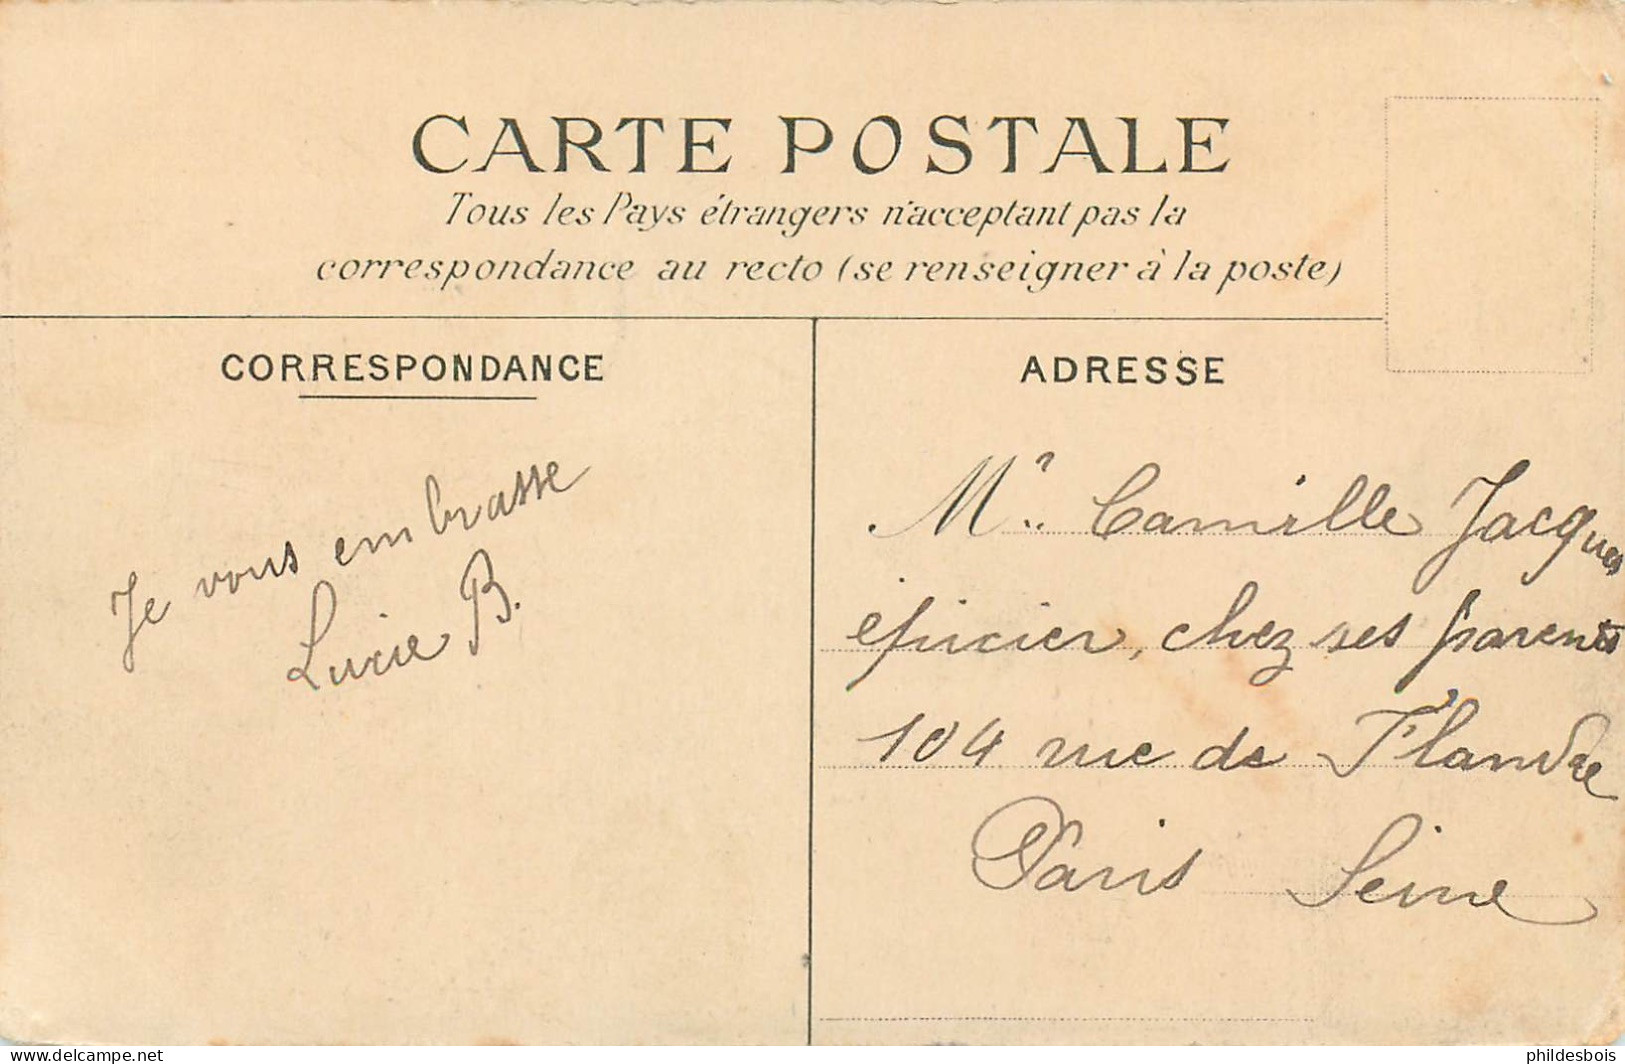 CARTE POSTALE
Tous les Pays étrangers n'acceptant pas la
correspondance au recto (se renseigner à la poste)
CORRESPONDANCE
Je vous embrasse
Lucie B.
ADRESSE
Mr. Camille Jacques
épicier, chez ses parents
104 rue de Flandre
Paris Seine
https://www.delcampe.net
phildesbois